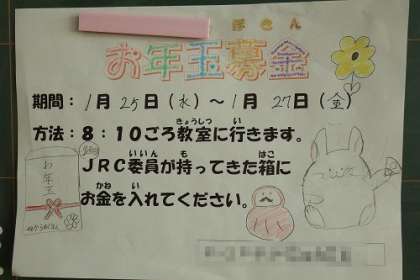 ぼきん
お年玉募金
期間：1月25日（水）～1月27日（金）
きょうしつ い
方法：８：１０ごろ教室に行きます。
いいん も はこ
ＪＲＣ委員が持ってきた箱に
かね い
お金を入れてください。
お年玉